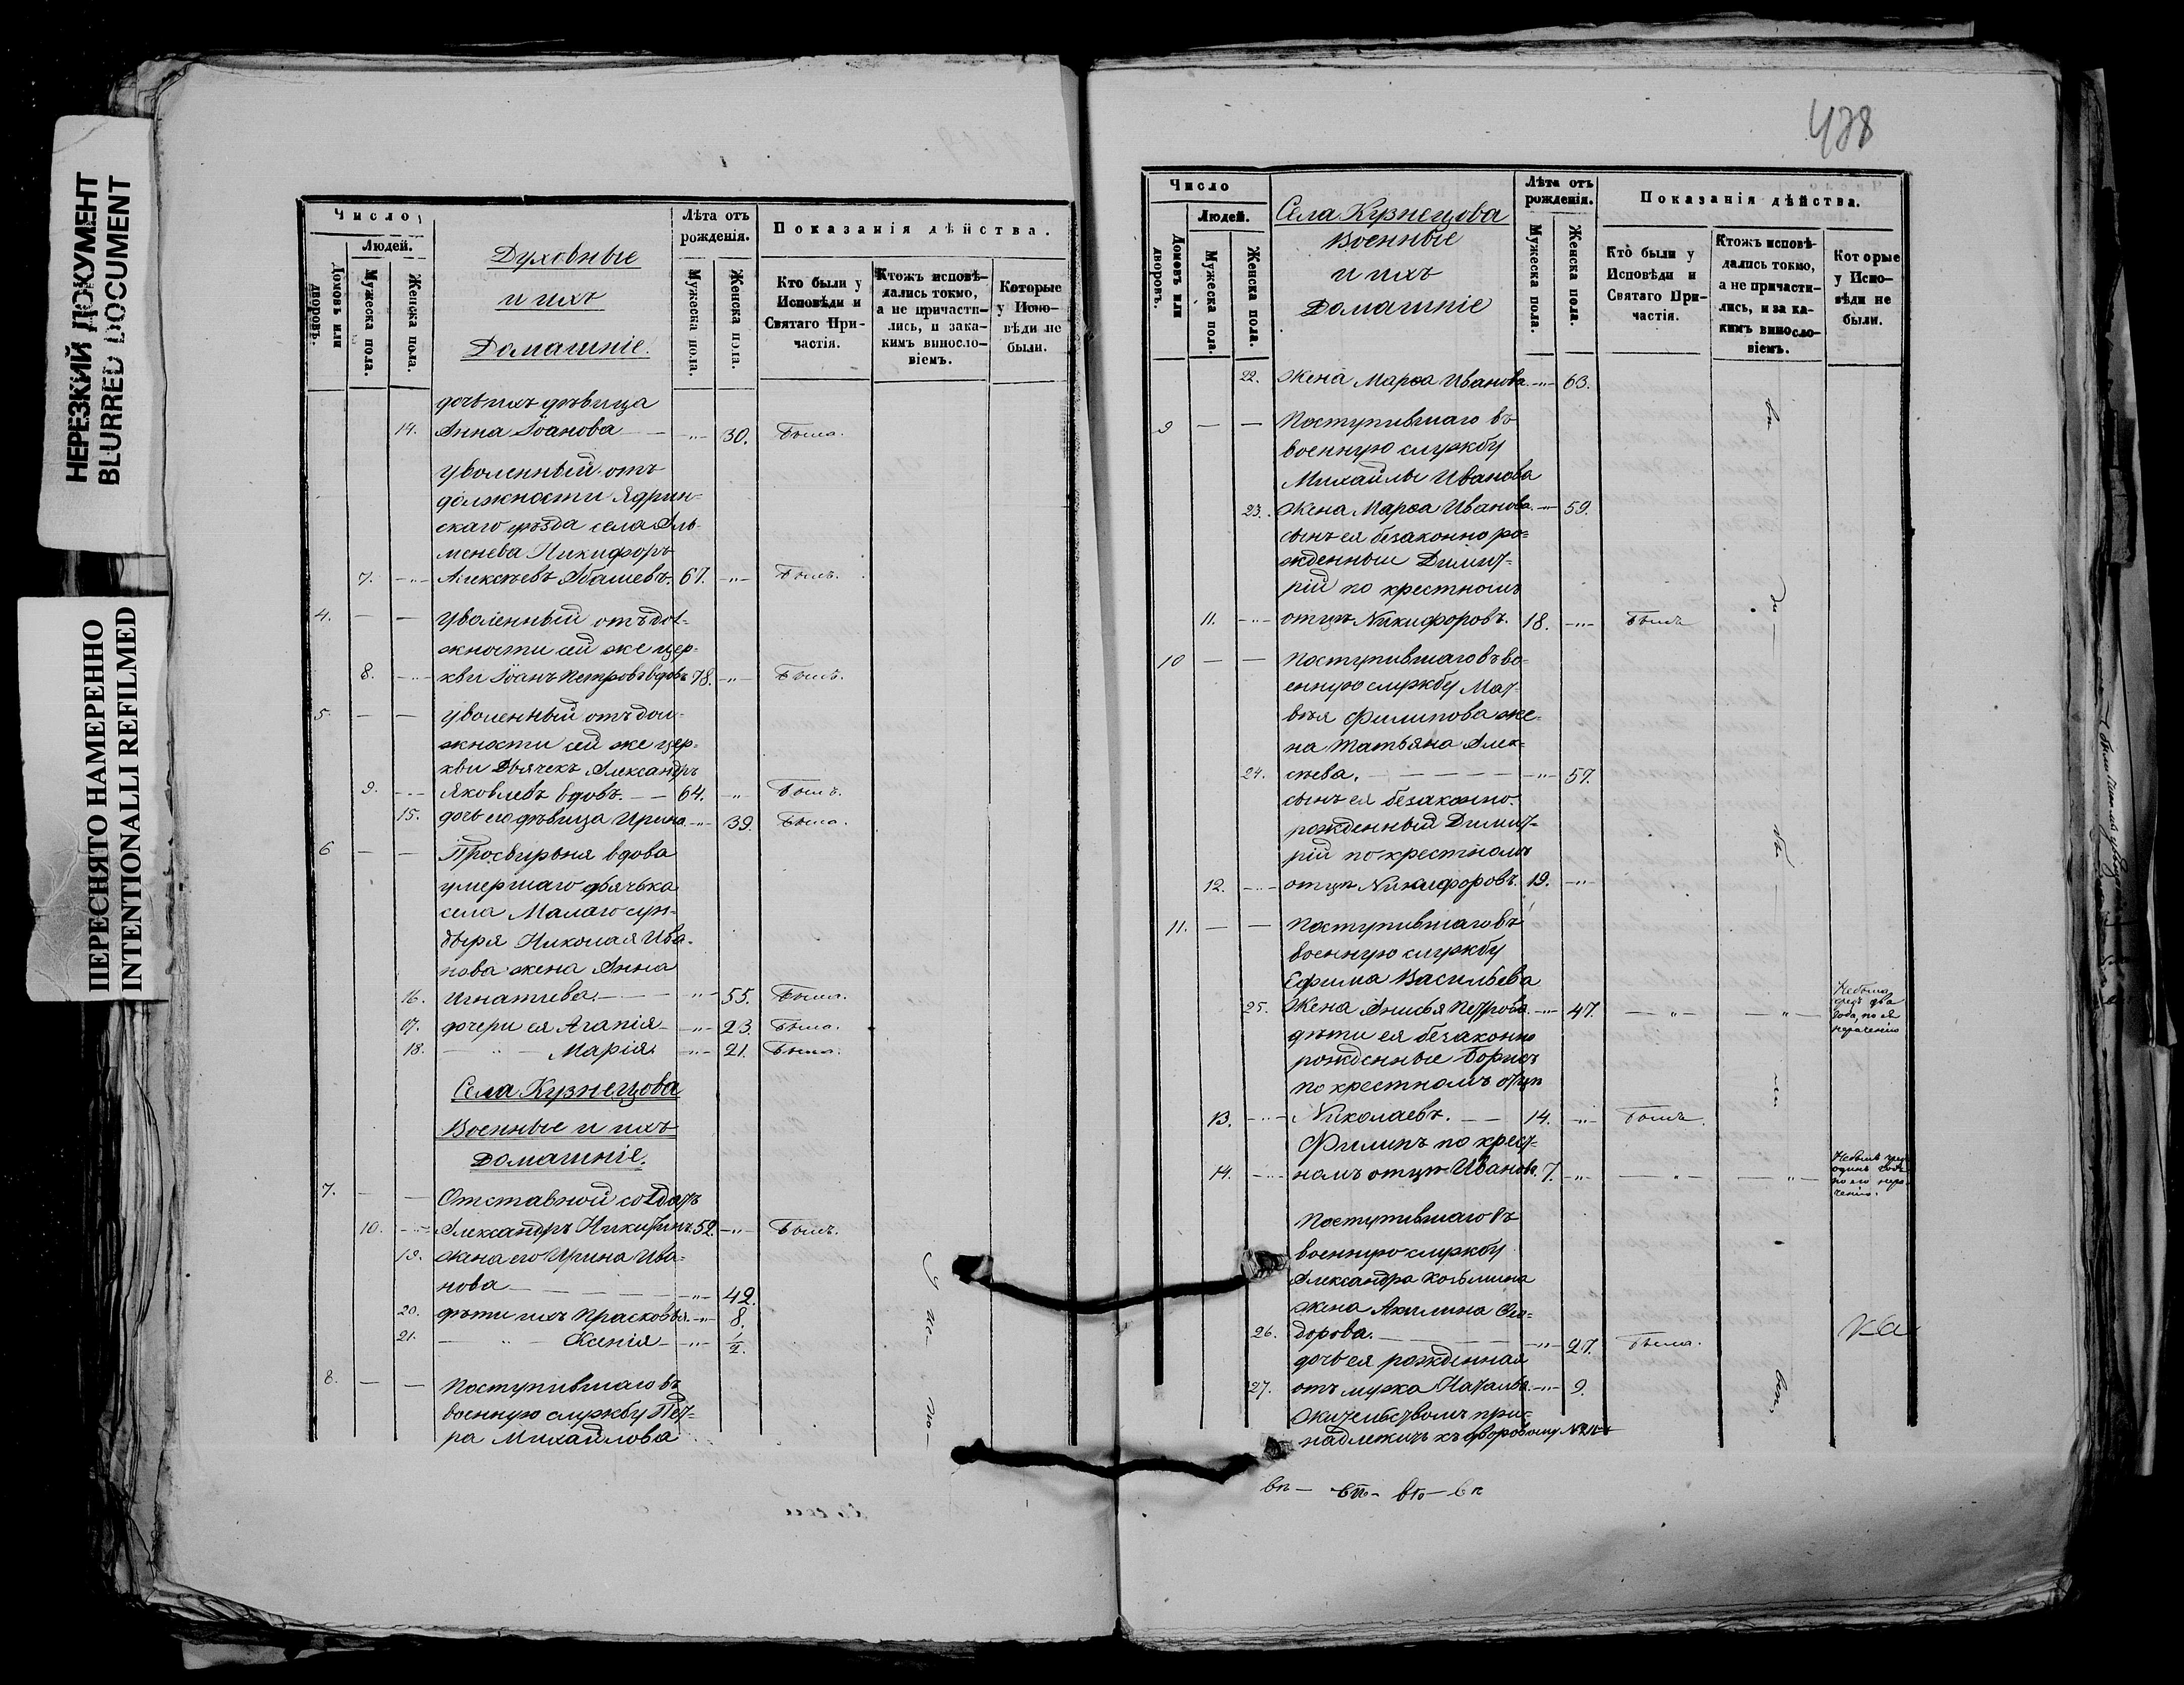 НЕРЕЗКИЙ ДОКУМЕНТ
BLURRED DOCUMENT
ПЕРЕСНЯТО НАМЕРЕННО
INTENTIONALLI REFILMED
Число
Людей.
Домовъ или дворовъ.
Мужеска пола.
Женска пола.
Духовные
и ихъ
Домашніе.
Лѣта отъ рожденія.
Мужеска пола.
Женска пола.
Показанія дѣйства.
Кто были у Исповѣди и Святаго Причастія.
Ктожъ исповѣдались токмо, а не причастились, и за какимъ винословіемъ.
Которые у Исповѣди не были.
дочь ихъ дѣвица
14. Анна Іоанова — -"- 30. Была.
Уволенный отъ
должности Ядрин-
скаго уѣзда села Аль-
менева Никифоръ
7. -"- Алексѣевъ Абашевъ. 67. -"- Былъ.
4. — — Уволенный отъ дол-
жности сей же цер-
8. -"- кви Іоанъ Петровъ вдовъ 78. -"- Былъ.
5. — — Уволенный отъ дол-
жности сей же цер-
кви Дьячекъ Александръ
9. --- Яковлевъ вдовъ. — — 64. -"- Былъ.
15. дочь его дѣвица Ирина -"- 39. Была.
6 — — Просвирьня вдова
умершаго дьячька
села Малаго Сун-
дыря Николая Ива-
нова жена Анна
16. Игнатиева. — -"- 55. Была.
17. дочери ея Агапія -"- 23. Была.
18. — " — Марія. -"- 21. Была.
Села Кузнецова
Военные и ихъ
Домашніе.
7. — — Отставной солдатъ
10. -"- Александръ Никитинъ. 52. -"- Былъ.
19. жена его Ирина Ива-
нова — -"- 42.
20. дѣти ихъ Прасковья. -"- 8.
21. — " — Ксенія — -"- 1/2.
8. — — Поступившаго въ
военную службу Пет-
ра Михайлова
438
Число
Людей.
Домовъ или дворовъ.
Мужеска пола.
Женска пола.
Села Кузнецова
Военные
и ихъ
Домашніе
Лѣта отъ рожденія.
Мужеска пола.
Женска пола.
Показанія дѣйства.
Кто были у Исповѣди и Святаго Причастія.
Ктожъ исповѣдались токмо, а не причастились, и за какимъ винословіемъ.
Которые у Исповѣди не были.
22. жена Марѳа Иванова. -"- 63.
9 — — Поступившаго въ
военную службу
Михайлы Иванова
23. Жена Марѳа Иванова. -"- 59.
сынъ ея безаконно ро-
жденный Димит-
рій по крестномъ
11. -"- отцѣ Никифоровъ. 18. -"- Былъ
10 — — Поступившаго въ во-
енную службу Мат-
вѣя Филипова же-
на Татьяна Алек-
24. сѣева. — -"- 57.
сынъ ея безаконно-
рожденный Димит-
рій по крестномъ
12. -"- отцѣ Никифоровъ. 19. -"-
11. — — Поступившаго въ
военную службу
Ефима Васильева
25. Жена Анисья Петрова. -"- 47. — " — — " — Небыла
два
года, по ея
нерачению
дѣти ея безаконно
рожденные Борисъ
по крестномъ отцѣ
13. -"- Николаевъ. — — 14. -"- Былъ.
Филипъ по крест-
14. -"- номъ отцѣ Ивановъ. 7. -"- — " — — " — Небылъ
одинъ годъ
по его нера-
чению.
Поступившаго въ
военную службу
Александра Козьмина
жена Акилина Ѳео-
26. дорова. — -"- 27. Была.
дочь ея рожденная
27. отъ мужа Наталья. -"- 9.
Жительствомъ при-
надлежитъ къ дворовому №
вп — вп — вп — вп